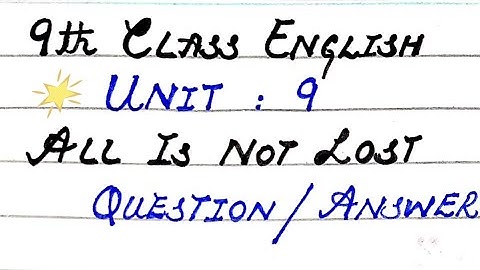 9th CLASS ENGLISH
UNIT : 9
ALL IS NOT LOST
QUESTION / ANSWER